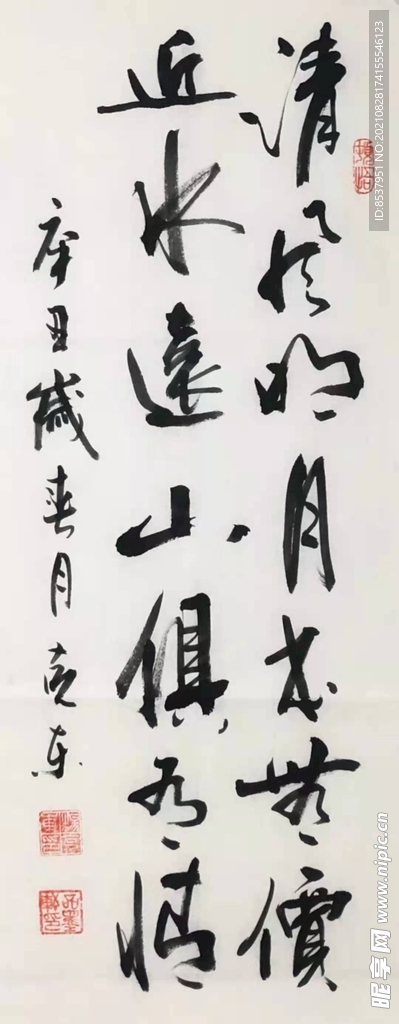 清風明月本無價
近水遠山俱有情
辛丑歲春月
ID:8537951 NO:20210828174155546123
昵享网 www.nipic.cn